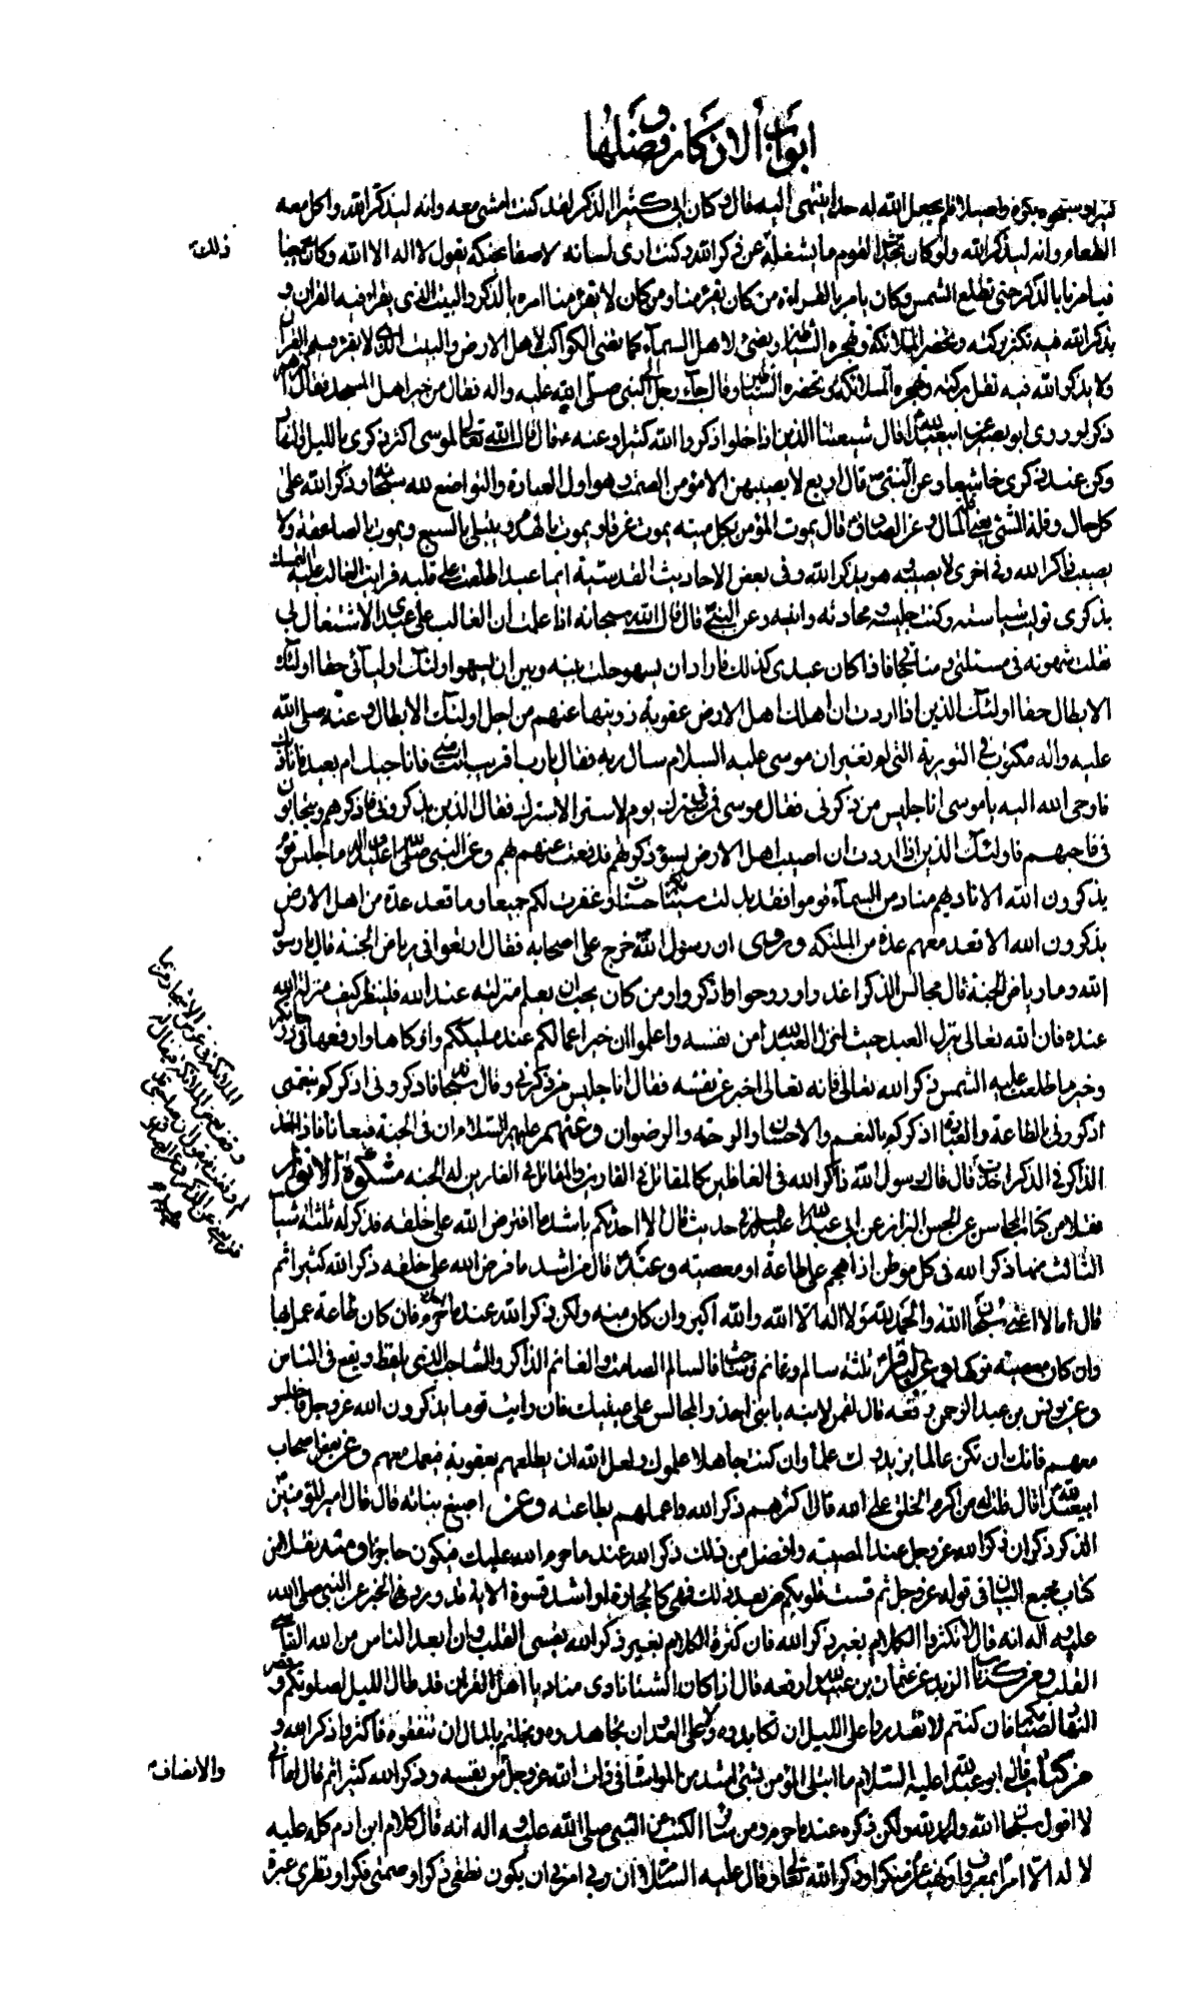 ابواب الاذكار وفضلها
وسبحوه بكرة واصيلا فلم يجعل الله له حدا ينتهى اليه قال وكان ابى كثير الذكر لقد كنت امشى معه وانه ليذكر الله واكل معه
الطعام وانه ليذكر الله ولو كان يحدث القوم ما يشغله عن ذكر الله وكنت ارى لسانه لاصقا بحنكه يقول لا اله الا الله وكان يجمعنا
ذلك
فيامرنا بالذكر حتى تطلع الشمس وكان يامر بالقراءة من كان يقرء منا ومن كان لا يقرء منا امره بالذكر والبيت الذى يقراء فيه القران و
يذكر الله فيه تكثر بركته وتحضره الملائكة وتهجره الشياطين ويضئ لاهل السماء كما تضئ الكواكب لاهل الارض والبيت الذى لا يقرء فيه القران
ولا يذكر الله فيه تقل بركته وتهجره الملائكة وتحضره الشياطين وقال جاء رجل الى النبى صلى الله عليه واله فقال من خير اهل المسجد فقال اكثرهم
ذكرا وروى ابو بصير عن ابيعبد الله قال شيعتنا الذين اذا خلوا ذكروا الله كثيرا وعنه ع قال قال الله تعالى لموسى اكثر ذكرى بالليل والنهار
وكن عند ذكرى خاشعا وعن النبى ص قال اربع لا يصيبهن الا مؤمن الصمت وهو اول العبادة والتواضع لله سبحانه وذكر الله على
كل حال وقلة الشئ يعنى قلة المال وعن الصادق ع قال يموت المؤمن بكل ميتة يموت غرقا ويموت بالهدم ويبتلى بالسبع ويموت بالصاعقة ولا
يصيب ذاكر الله وفى اخرى لا يصيبه وهو يذكر الله وفى بعض الاحاديث القدسية ايما عبد اطلعت على قلبه فرايت الغالب عليه التمسك
بذكرى توليت سياسته وكنت جليسه ومحادثه وانيسه وعن النبى ص قال قال الله سبحانه اذا علمت ان الغالب على عبدى الاشتغال بى
نقلت شهوته فى مسئلتى ومناجاتى فاذا كان عبدى كذلك فاراد ان يسهو حلت بينه وبين ان يسهو اولئك اوليائى حقا اولئك
الابطال حقا اولئك الذين اذا اردت ان اهلك اهل الارض عقوبة زويتها عنهم من اجل اولئك الابطال وعنه صلى الله
عليه واله مكتوب فى التورية التى لم تغير ان موسى عليه السلام سال ربه فقال يارب اقريب انت منى فاناجيك ام بعيد فاناديك
فاوحى الله اليه ياموسى انا جليس من ذكرنى فقال موسى فمن فى سترك يوم لا ستر الا سترك فقال الذين يذكرونى فاذكرهم ويتحابون
فى فاحبهم فاولئك الذين اذا اردت ان اصيب اهل الارض بسوء ذكرتهم فدفعت عنهم بهم وعن النبى صلى الله عليه واله ما جلس قوم
يذكرون الله الا ناديهم مناد من السماء قوموا فقد بدلت سيئاتكم حسنات وغفرت لكم جميعا وما قعد عدة من اهل الارض
يذكرون الله الا قعد معهم عدة من الملئكة وروى ان رسول الله خرج على اصحابه فقال ارتعوا فى رياض الجنة قال يا رسول
الله وما رياض الجنة قال مجالس الذكر اغدوا وروحوا واذكروا ومن كان يحب ان يعلم منزلته عند الله فلينظر كيف منزلة الله
عنده فان الله تعالى ينزل العبد حيث انزل العبد الله من نفسه واعلموا ان خير اعمالكم عند مليككم وازكاها وارفعها فى درجاتكم
وخير ما طلعت عليه الشمس ذكر الله تعالى فانه تعالى اخبر عن نفسه فقال انا جليس من ذكرنى وقال سبحانه فاذكرونى اذكركم بنعمتى
اذكرونى بالطاعة والعبادة اذكركم بالنعم والاحسان والرحمة والرضوان وعنهم عليهم السلام ان فى الجنة قيعانا فاذا اخذ
الذاكر فى الذكر قال قال رسول الله ذاكر الله فى الغافلين كالمقاتل فى الفارين والمقاتل فى الفارين له الجنة مشكوة الانوار
نقلا من كتاب المحاسن عن الحسن البزاز عن ابى عبد الله عليه السلام فى حديث قال الا احدثكم باشد ما افترض الله على خلقه فذكر له ثلثة اشياء
الثالث منها ذكر الله فى كل موطن اذا هجم على طاعة او معصيته وعنه ع قال من اشد ما فرض الله على خلقه ذكر الله كثيرا ثم
قال اما لا اعنى سبحان الله والحمد لله ولا اله الا الله والله اكبر وان كان منه ولكن ذكر الله عند ما حرم فان كان طاعة عمل بها
وان كان معصية تركها وعن الباقر ثلثة سالم وغانم وشاحب فالسالم الصامت والغانم الذاكر والشاحب الذى يلفظ ويقع فى الناس
وعن يونس بن عبد الرحمن رفعه قال لقمن لابنه يا بنى اختر المجالس على عينيك فان رايت قوما يذكرون الله عز وجل فاجلس
معهم فانك ان تكن عالما يزيدوك علما وان كنت جاهلا علموك ولعل الله ان يطلعهم بعقوبة فيعمك معهم وعن بعض اصحاب
ابيعبد الله قال قلت له من اكرم الخلق على الله قال اكثرهم ذكر الله واعملهم بطاعته وعن اصبغ بن نباته قال قال امير المؤمنين
الذكر ذكران ذكر الله عز وجل عند المصيبة وافضل من ذلك ذكر الله عند ما حرم الله عليك فيكون حاجزا ومنه نقلا من
كتاب مجمع البيان فى قوله عز وجل ثم قست قلوبكم من بعد ذلك فهى كالحجارة او اشد قسوة الاية قد ورد فى الخبر عن النبى صلى الله
عليه واله انه قال لا تكثروا الكلام بغير ذكر الله فان كثرة الكلام بغير ذكر الله يقسى القلب وان ابعد الناس من الله القاسى
القلب ومن كتاب الزهد عن عثمان بن عبيد الله رفعه قال اذا كان الشتاء نادى مناد يا اهل القران قد طال الليل لصلوتكم وقصر
النهار لصيامكم فان كنتم لا تقدروا على الليل ان تكابدوه ولا على العدو ان تجاهدوه وبخلتم بالمال ان تنفقوه فاكثروا ذكر الله و
من كتاب قال ابو عبد الله عليه السلام ما ابتلى المؤمن بشئ اشد من المواساة فى ذات الله عز وجل من نفسه وذكر الله كثيرا ثم قال اما انى
والانصاف
لا اقول سبحان الله والحمد لله ولكن ذكره عند ما حرم ومن سائر الكتب عن النبى صلى الله عليه واله انه قال كلام ابن ادم كله عليه
لا له الا امرا بمعروف او نهيا عن منكر او ذكر الله تعالى وقال عليه السلام ان ربى امرنى ان يكون نطقى ذكرا وصمتى فكرا ونظرى عبرة